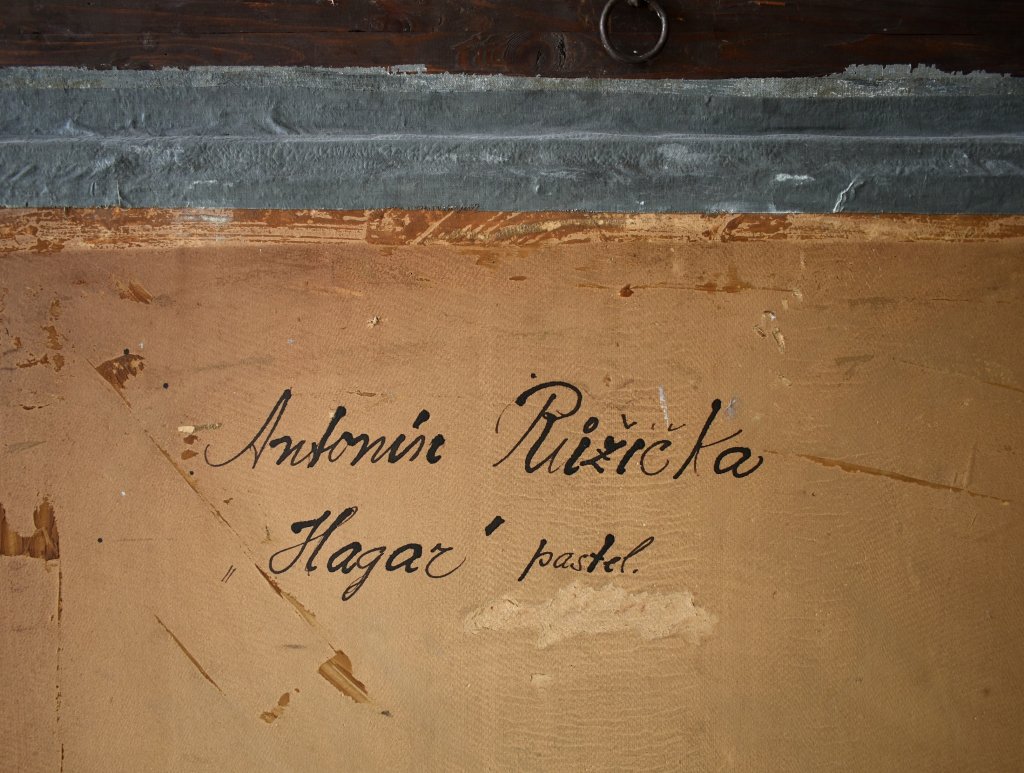 Antonín Růžička
Hagar pastel.